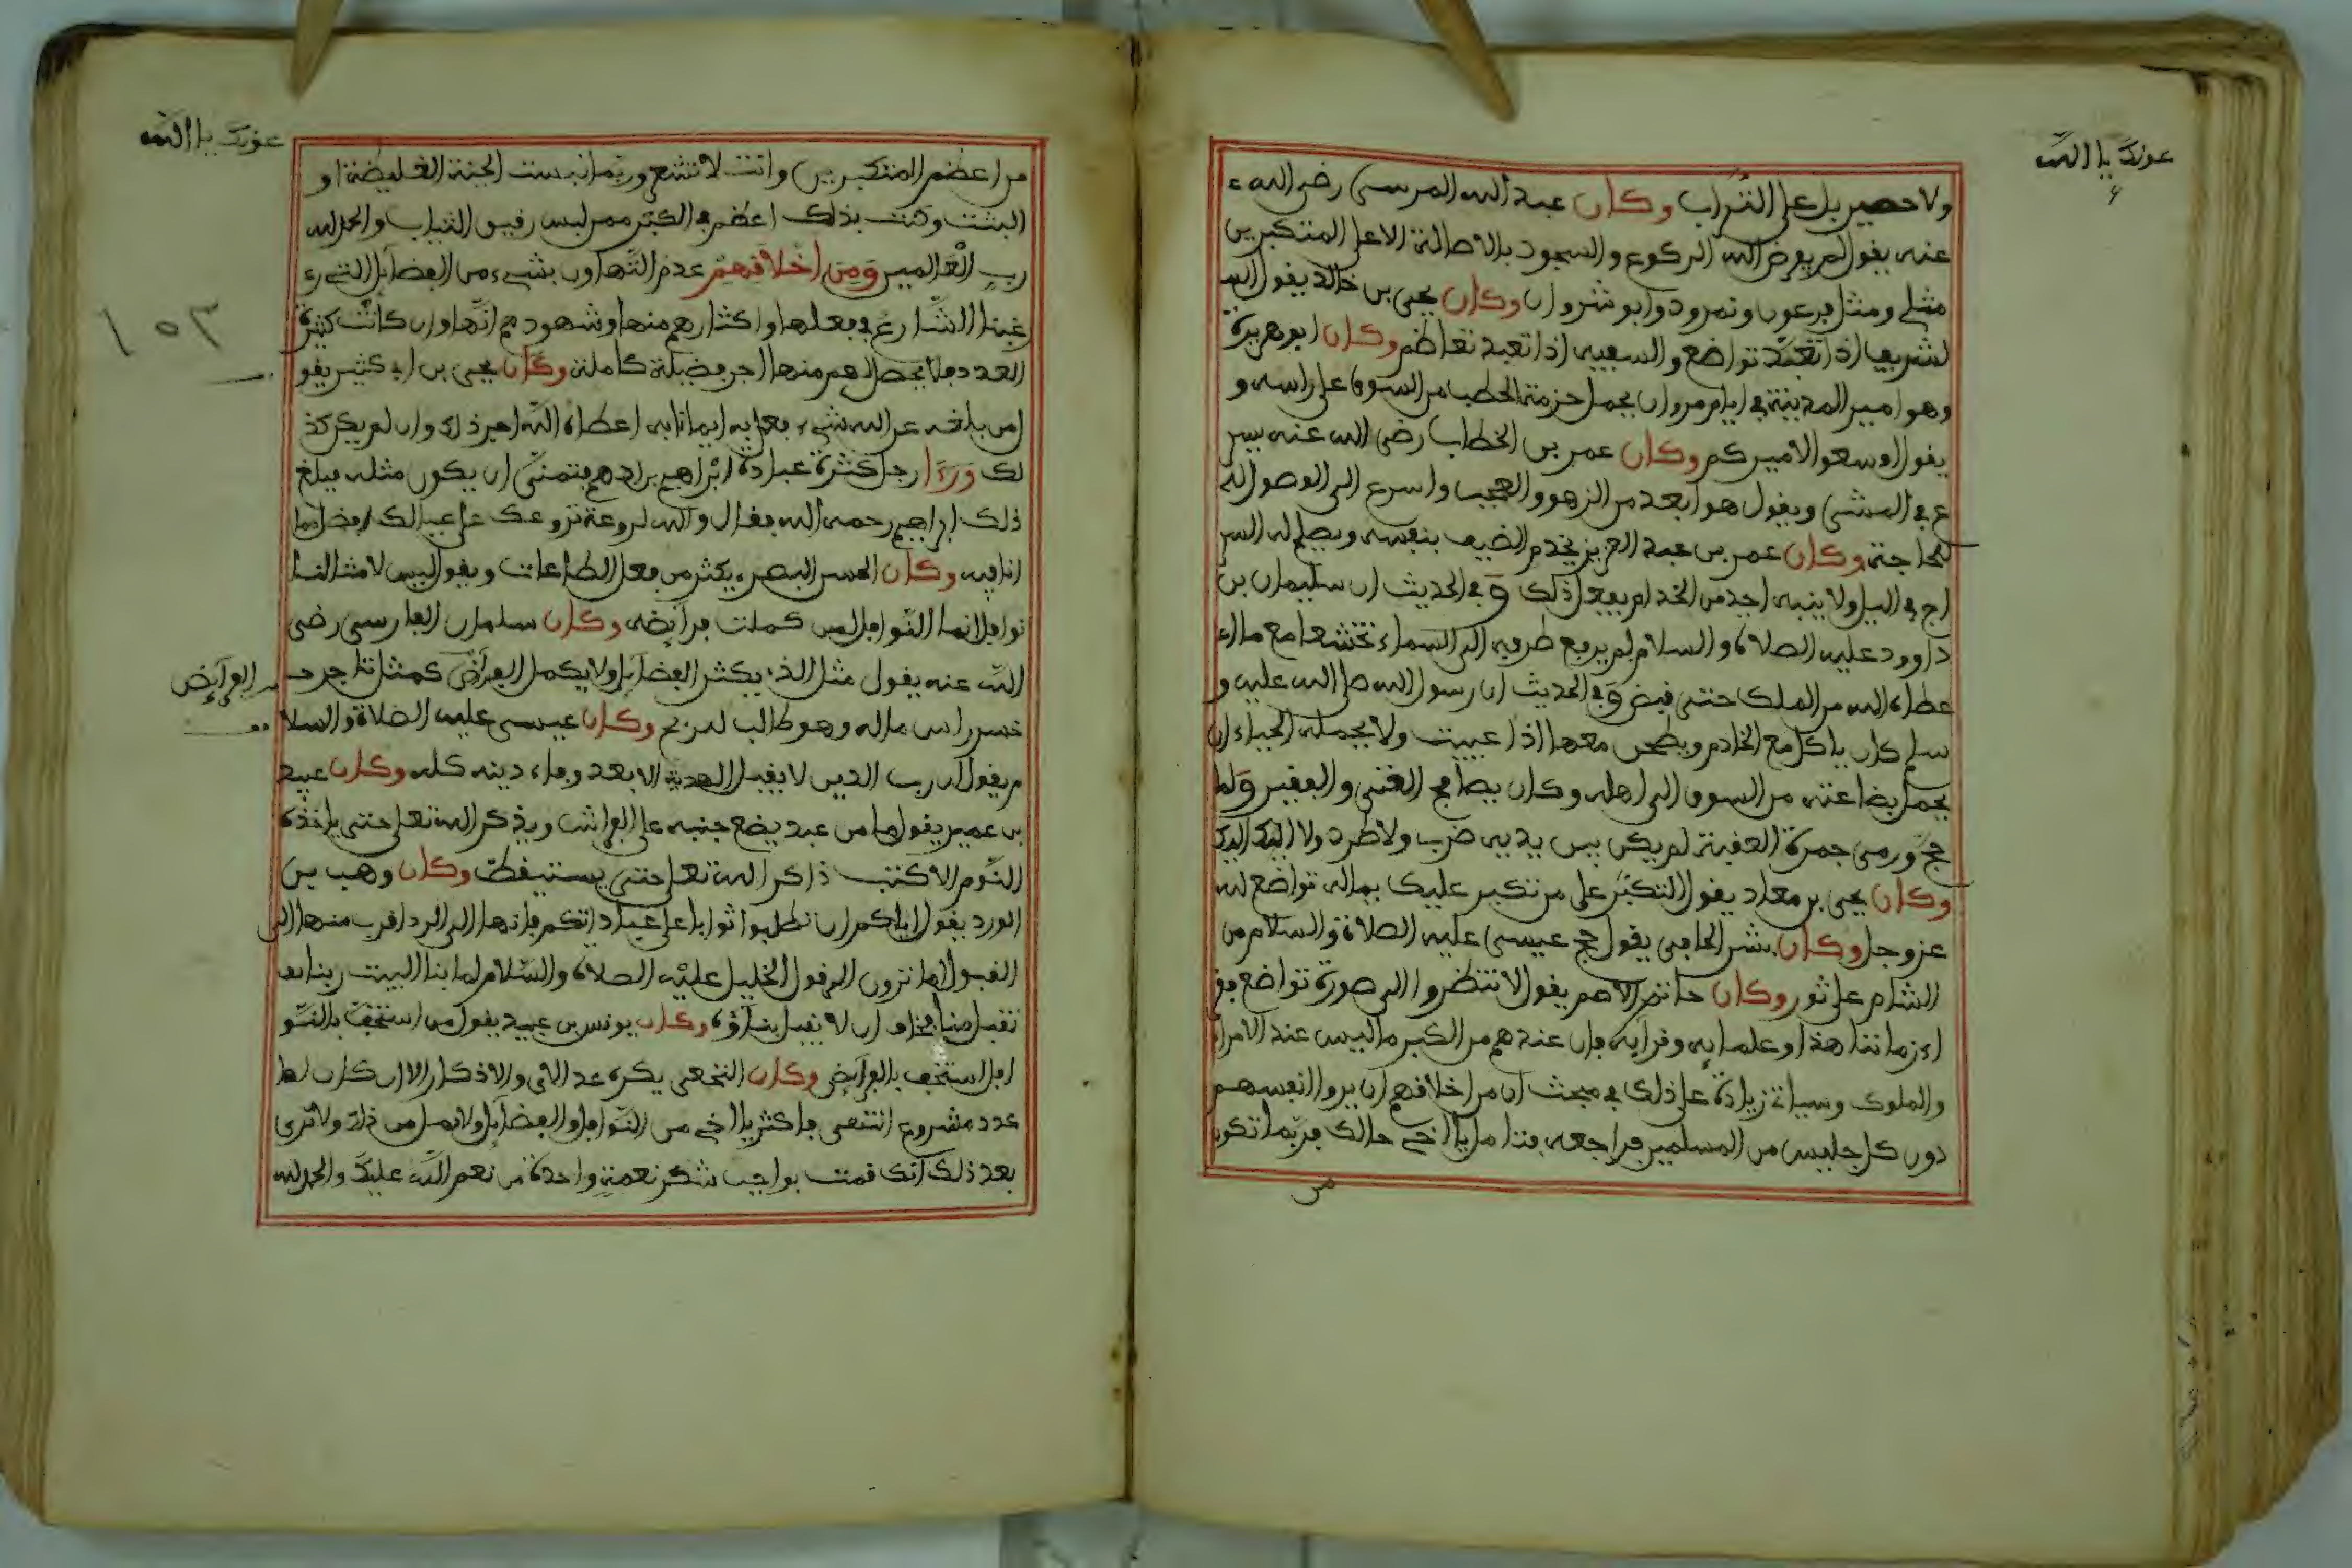 عونك يا الله
ولا حصير بل على التراب وكان عبد الله المرسى رضى الله ء
عنه يفول لم يعرض الله الركوع والسجود بالاصالة الا على المتكبرين
مثلي ومثل فرعون ونمرود وابو شروان وكان يحيى بن خالد يفول الـ
لشريف اذا تعبد تواضع والسفيه اذا تعبد تعاظم وكان ابو هريرة
وهو امير المدينة في ايام مروان يحمل حزمة الحطب من السوق على راسه و
يفول اوسعوا لاميركم وكان عمر بن الخطاب رضى الله عنه يسر
ع في المشي ويفول هو ابعد من الزهو والعجب واسرع الى الوصول الى
للحاجة وكان عمر بن عبد العزيز يخدم الضيف بنفسه ويصلح له السر
اج في اليل ولا ينبه احد من الخدام يفعل ذلك وفي الحديث ان سليمان بن
داوود عليه الصلاة والسلام لم يرفع طرفه الى السماء تخشعا مع ما اء
عطاه الله من الملك حتى فبض وفي الحديث ان رسول الله صلى الله عليه و
سلم كان ياكل مع الخادم ويطحن معها اذا عييت ولا يحمله الحياء ان
يحمل بضاعته من السوق الى اهله وكان يصافح الغني والبفير ولما
حج ورمى جمرة العفبة لم يكن بين يديه ضرب ولا طرد ولا اليك اليك
وكان يحيى بن معاد يفول التكبر على من تكبر عليك بماله تواضع لله
عز وجل وكان بشر الحافى يفول حج عيسى عليه الصلاة والسلام من
الشام على ثور وكان حاتم الاصم يفول لا تنظروا الى صورة تواضع فـ
اء زماننا هذا وعلمايه وفرايه فان عندهم من الكبر ما ليس عند الامراء
والملوك وسياتي زيادة على ذلك في مبحث ان من اخلافهم ان يروا انفسهم
دون كل جليس من المسلمين فراجعه فتامل يا اخي حالك فربما تكون
من
عونك يا الله
من اعظم المتكبرين وانت لا تشعر وربما لبست الجبة الغليضة او
البشت وكنت بذلك اعظم في الكبر ممن لبس رفيق الثياب والحمد لله
رب العالمين ومن اخلافهم عدم التهاون بشيء من الفضايل التي رء
غبنا الشارع في فعلها واكثارهم منها وشهودهم انها وان كانت كثيرة
العدد فلا يحصل لهم منها اجر فضيلة كاملة وكان يحيى بن ابي كثير يفو
١٥٣
ل من بلغه عن الله شيء ففعل به ايمانا به اعطاه الله اجر ذلك وان لم يكن كذ
لك ورءا رجل كثرة عبادة ابراهيم بن ادهم فتمنى ان يكون مثله فبلغ
ذلك ابراهيم رحمه الله ففال والله لروعة تروعك على عيالك افضل مما
انا فيه وكان الحسن البصري يكثر من فعل الطاعات ويفول ليس لامثالنا
نوافل انما النوافل لمن كملت فرايضه وكان سلمان الفارسى رضى
الله عنه يفول مثل الذي يكثر الفضايل ولا يكمل الفرايض كمثل تاجر
الفرايض
خسر راس ماله وهو طالب للربح وكان عيسى عليه الصلاة والسلا
م يفول ان رب الدين لا يفبل الهدية الا بعد وفاء دينه كله وكان عبيد
بن عمير يفول ما من عبد يضع جنبه على الفراش ويذكر الله تعلى حتى ياخذه
النوم الا كتب ذاكرا لله تعلى حتى يستيفظ وكان وهب بن
الورد يفول اياكم ان تطلبوا ثوابا على عباداتكم فانها الى الرد افرب منها الى
الفبول اما ترون الى فول الخليل عليه الصلاة والسلام لما بنا البيت ربنا
تفبل منا فخاف ان لا يفبل بناؤه وكان يونس بن عبيد يفول من استخف بالنو
افل استخف بالفرايض وكان النخعى يكره عد الاى والاذكار الا ان كان لها
عدد مشروع انتهى فاكثر يا اخي من النوافل والفضايل ولا تمل من ذلك ولا ترى
بعد ذلك انك قمت بواجب شكر نعمة واحدة من نعم الله عليك والحمد لله